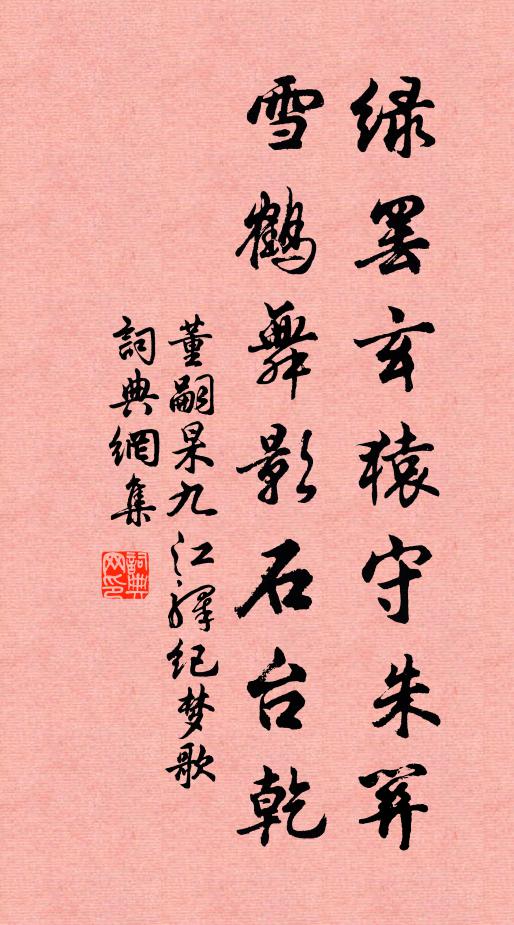 绿罢玄猿守朱
雪鹤舞影石台乾
董嗣杲九江驿纪梦歌
詞典網集
詞典网印